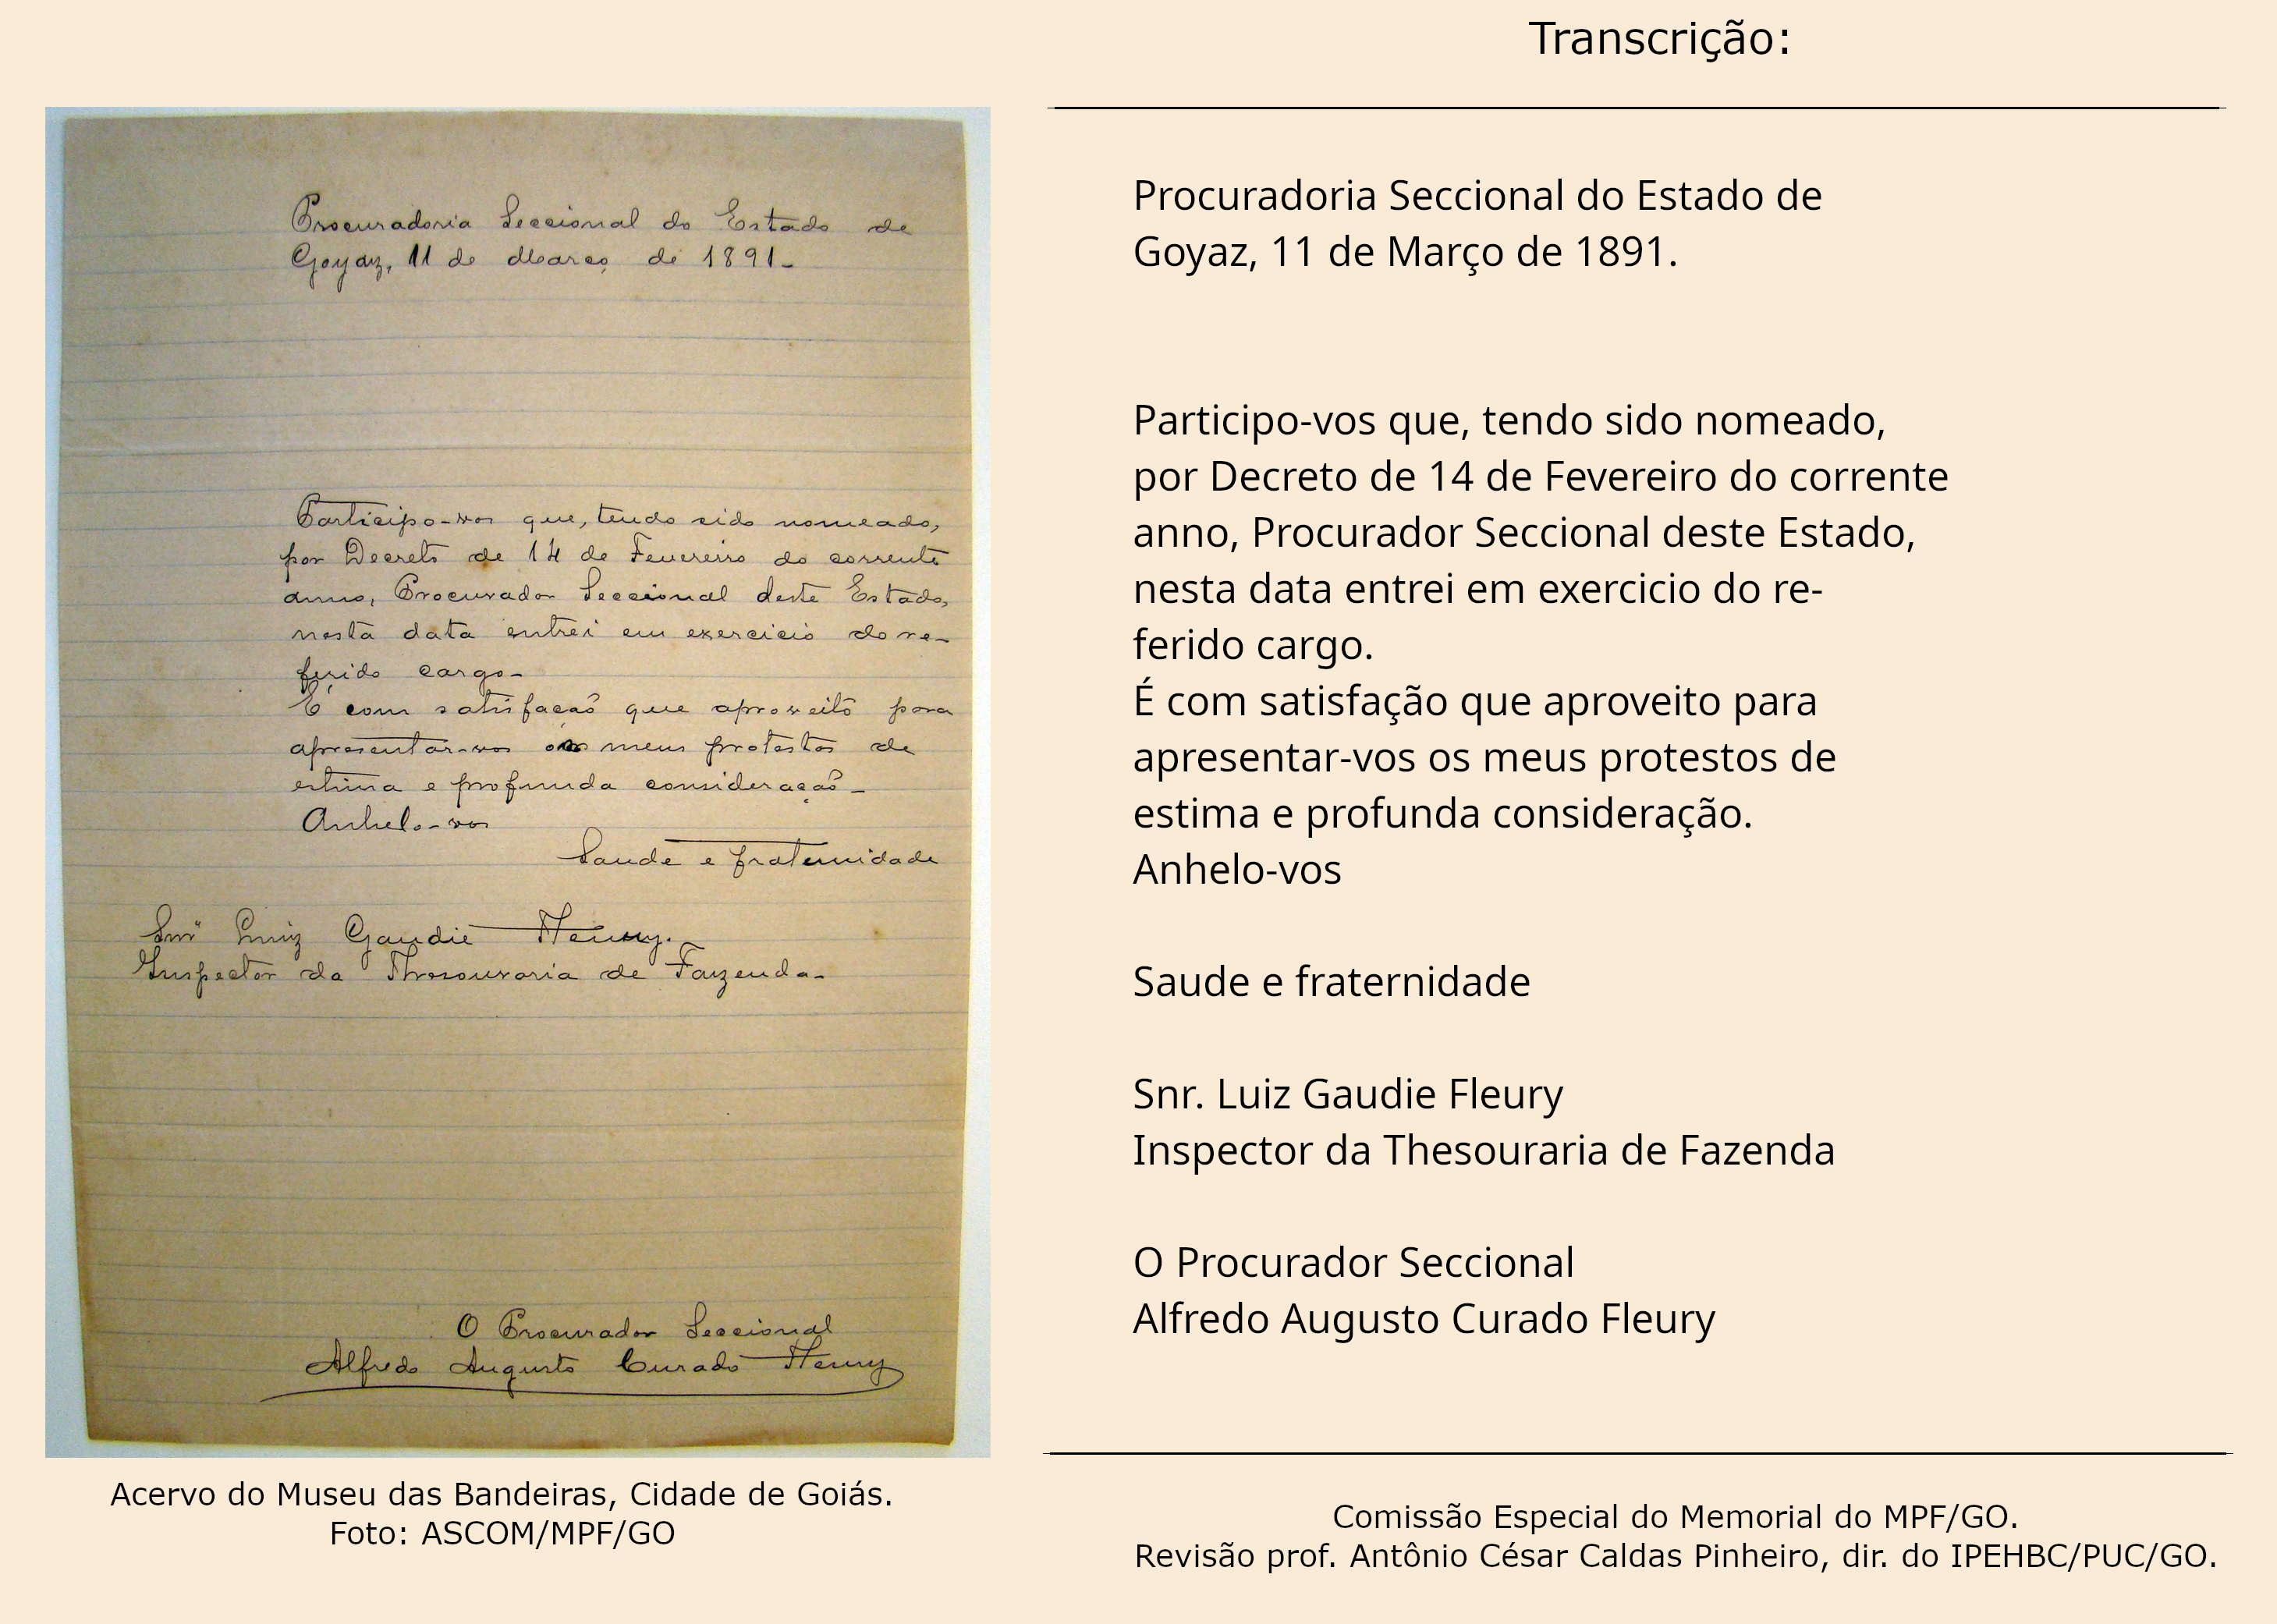 Procuradoria Seccional do Estado de
Goyaz, 11 de Março de 1891_
Participo-vos que, tendo sido nomeado,
por Decreto de 14 de Fevereiro do corrente
anno, Procurador Seccional deste Estado,
nesta data entrei em exercicio do re-
ferido cargo_
É com satisfação que aproveito para
apresentar-vos os meus protestos de
estima e profunda consideração_
Anhelo-vos
Saude e fraternidade
Snr Luiz Gaudie Fleury.
Inspector da Thesouraria de Fazenda_
O Procurador Seccional
Alfredo Augusto Curado Fleury
Acervo do Museu das Bandeiras, Cidade de Goiás.
Foto: ASCOM/MPF/GO
Transcrição:
Procuradoria Seccional do Estado de
Goyaz, 11 de Março de 1891.
Participo-vos que, tendo sido nomeado,
por Decreto de 14 de Fevereiro do corrente
anno, Procurador Seccional deste Estado,
nesta data entrei em exercicio do re-
ferido cargo.
É com satisfação que aproveito para
apresentar-vos os meus protestos de
estima e profunda consideração.
Anhelo-vos
Saude e fraternidade
Snr. Luiz Gaudie Fleury
Inspector da Thesouraria de Fazenda
O Procurador Seccional
Alfredo Augusto Curado Fleury
Comissão Especial do Memorial do MPF/GO.
Revisão prof. Antônio César Caldas Pinheiro, dir. do IPEHBC/PUC/GO.